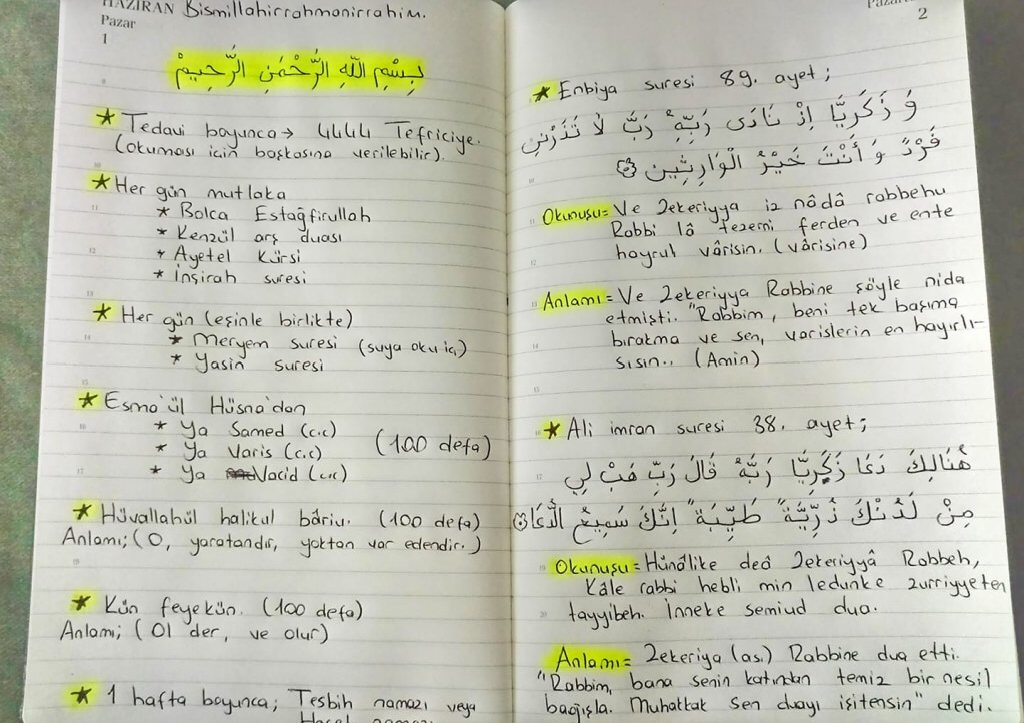 HAZİRAN Bismillahirrahmanirrahim.
Pazar
1
بِسْمِ اللّٰهِ الرَّحْمٰنِ الرَّحِيمْ
* Tedavi boyunca → 4444 Tefriciye.
(okuması için başkasına verilebilir).
* Her gün mutlaka
* Bolca Estağfirullah
* Kenzül arş duası
* Ayetel Kürsi
* İnşirah suresi
* Her gün (eşinle birlikte)
* Meryem suresi (suya oku iç)
* Yasin suresi
* Esma'ül Hüsna'dan
* Ya Samed (c.c)
* Ya Varis (c.c) (100 defa)
* Ya Vacid (c.c)
* Hüvallahül halikul bâriu. (100 defa)
Anlamı; (O, yaratandır, yoktan var edendir.)
* Kün feyekün. (100 defa)
Anlamı; (Ol der, ve olur)
* 1 hafta boyunca; Tesbih namazı veya
2
* Enbiya suresi 89. ayet;
وَ زَكَرِيَّا اِذْ نَادَى رَبَّهُ رَبِّ لَا تَذَرْنِي
فَرْدًا وَ أَنْتَ خَيْرُ الْوَارِثِين
Okunuşu= Ve Zekeriyya iz nâdâ rabbehu
Rabbi lâ tezerni ferden ve ente
hayrul vârisin. (vârisine)
Anlamı= Ve Zekeriyya Rabbine şöyle nida
etmişti. "Rabbim, beni tek başıma
bırakma ve sen, varislerin en hayırlı-
sısın.. (Amin)
* Ali imran suresi 38. ayet;
هُنَالِكَ دَعَا زَكَرِيَّا رَبَّهُ قَالَ رَبِّ هَبْ لِي
مِنْ لَدُنْكَ ذُرِّيَّةً طَيِّبَةً اِنَّكَ سَمِيعُ الدُّعَاءِ
Okunuşu= Hünâlike deâ Zekeriyyâ Rabbeh,
Kâle rabbi hebli min ledunke zurriyyeten
tayyibeh. İnneke semiud dua.
Anlamı= Zekeriya (as.) Rabbine dua etti.
"Rabbim, bana senin katından temiz bir nesil
bağışla. Muhakkak sen duayı işitensin" dedi.